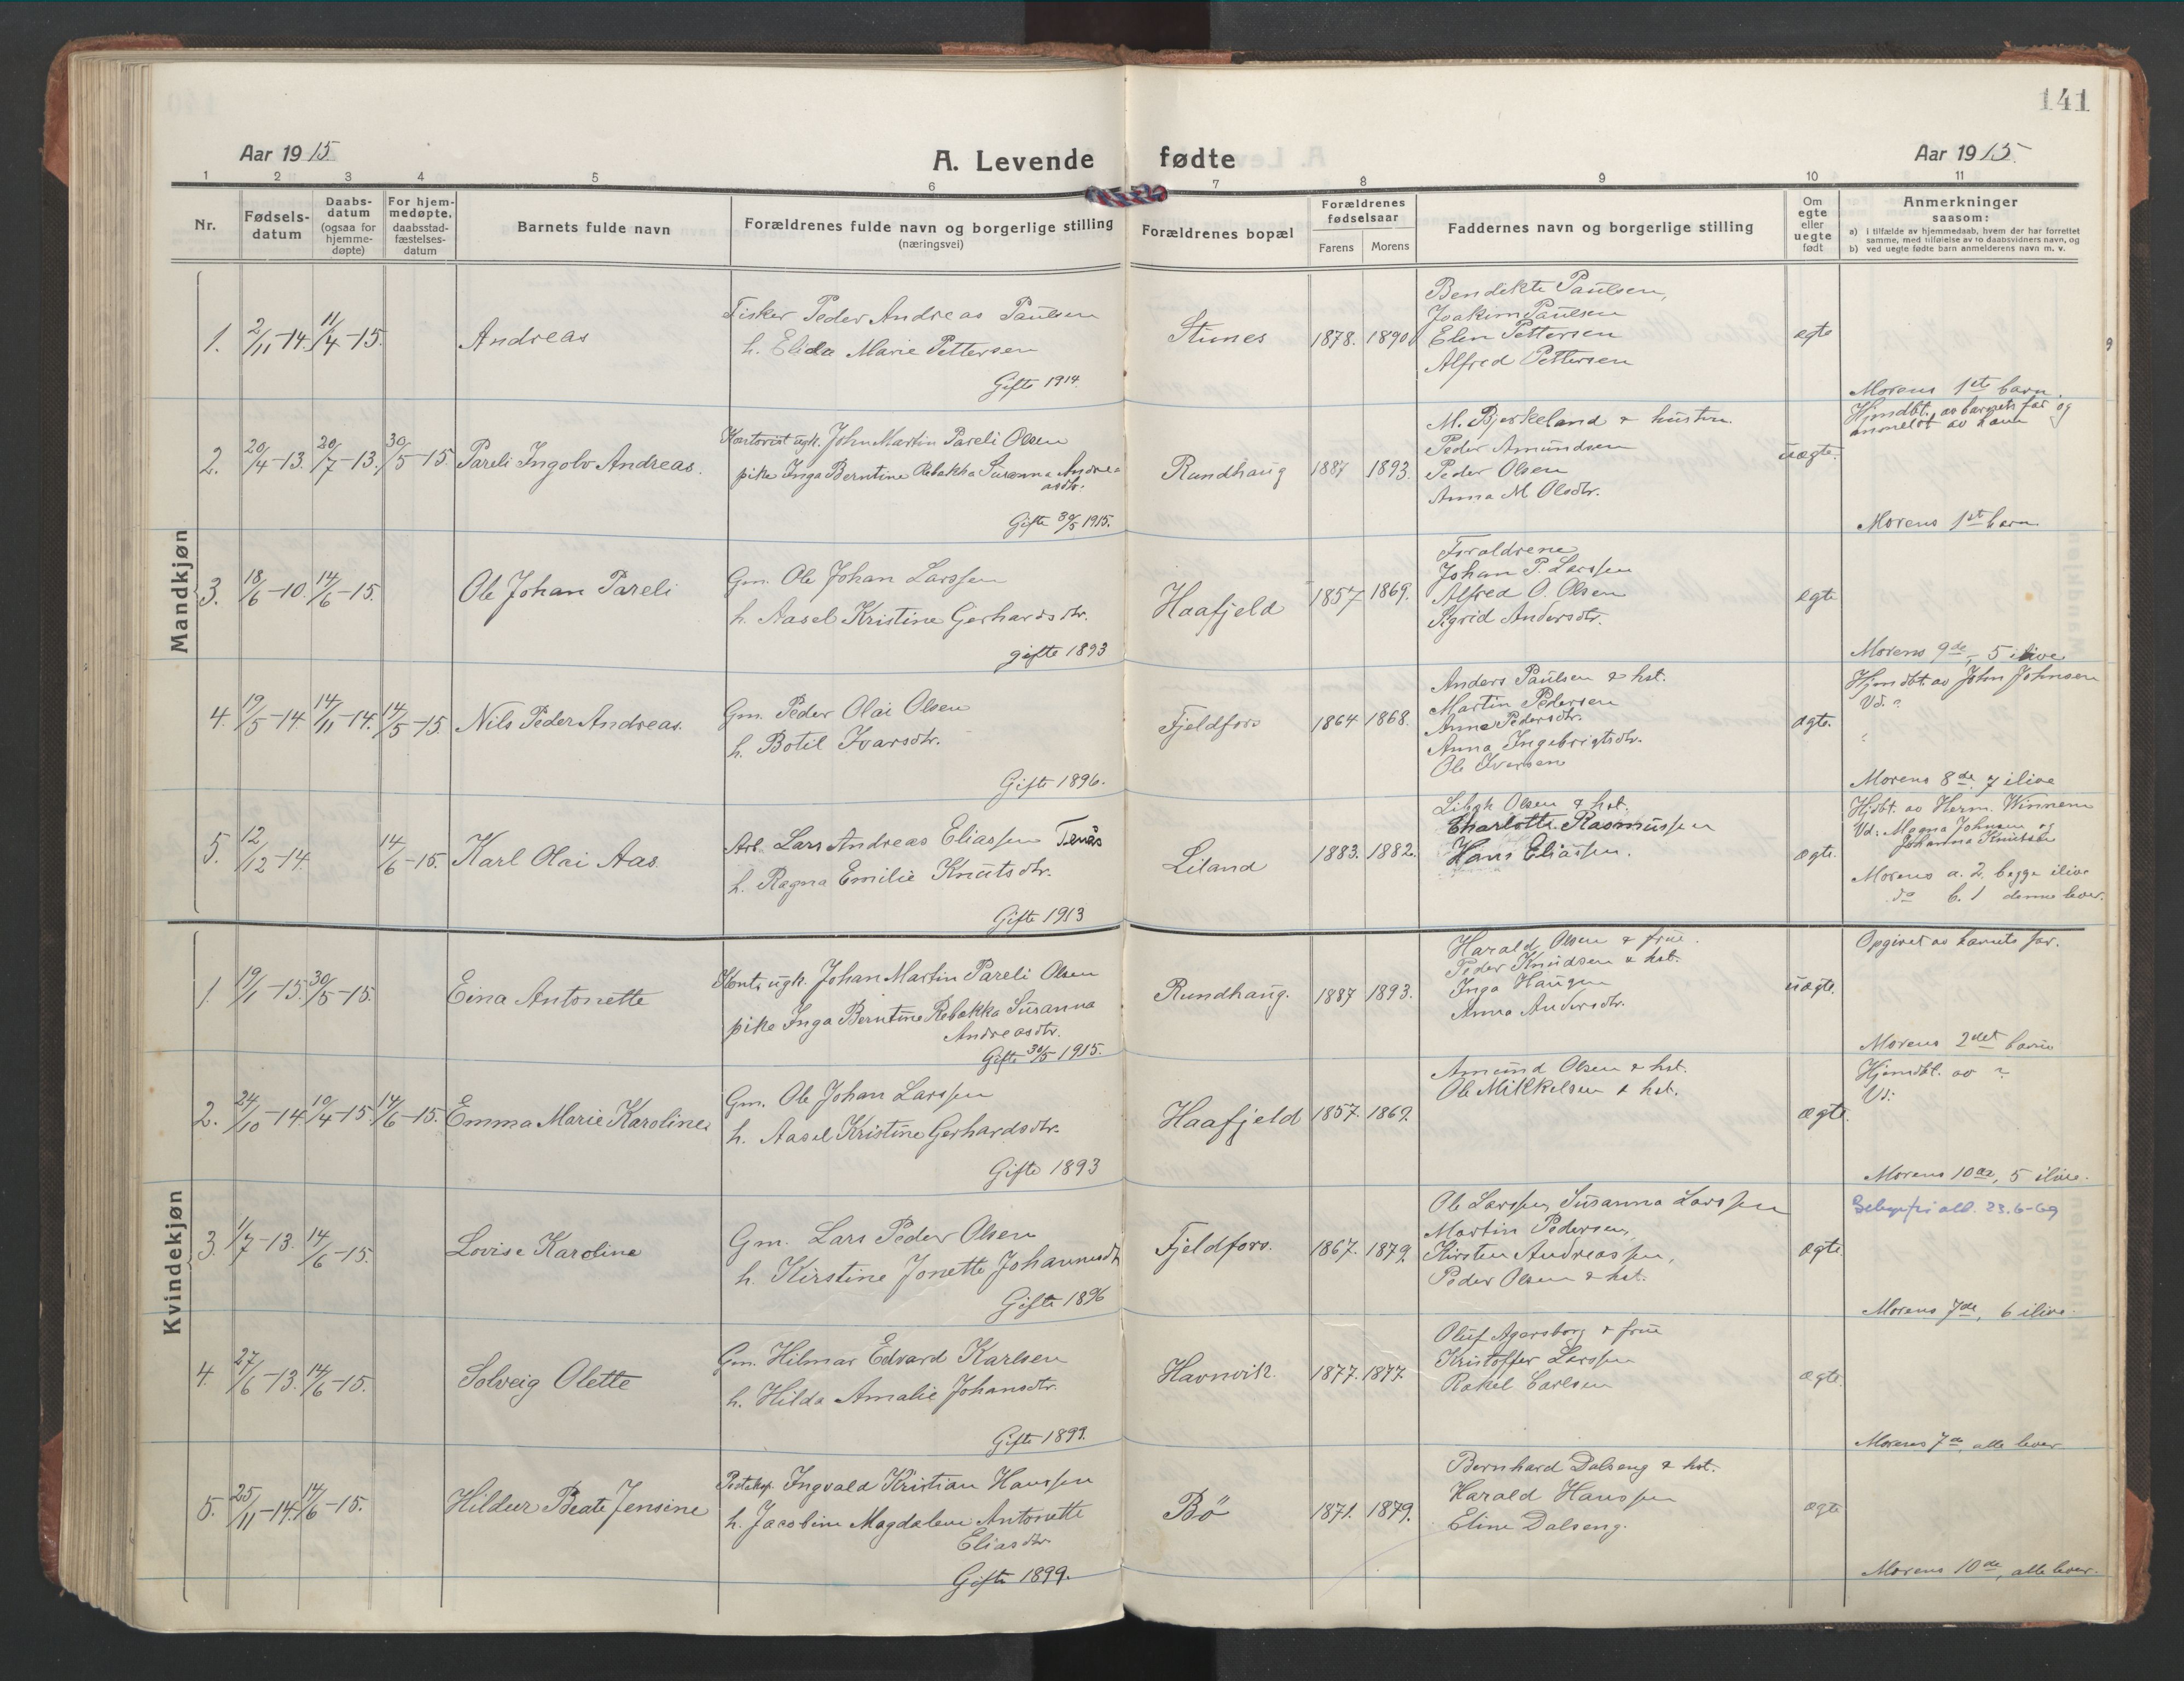 141
Aar 1915
A. Levende fødte
Aar 1915
1 2 3 4 5 6 7 8 9 10 11
Nr.
Fødsels-
datum
Daabs-
datum
(ogsaa for
hjemme-
døpte)
For hjem-
medøpte,
daabsstad-
fæstelses-
datum
Barnets fulde navn
Forældrenes fulde navn og borgerlige stilling
(næringsvei)
Forældrenes bopæl
Forældrenes
fødselsaar
Farens Morens
Faddernes navn og borgerlige stilling
Om
egte
eller
uegte
født
Anmerkninger
saasom:
a) i tilfælde av hjemmedaab, hvem der har forrettet
samme, med tilføielse av to daabsvidners navn, og
b) ved uegte fødte barn anmelderens navn m. v.
Mandkjøn
1. 2/11-14. 11/4-15. Andreas
Fisker Peder Andreas Paulsen
h. Elida Marie Pettersen
Gifte 1914.
Stunes 1878. 1890
Bendikte Paulsen,
Joakim Paulsen
Elen Pettersen
Alfred Pettersen
egte
Morens 1ste barn.
2. 20/4-13. 20/7-13. 30/5-15. Pareli Ingolv Andreas.
Kontorist ugk. John Martin Pareli Olsen
pike Inga Berntine Rebekka Susanna Andre-
asdtr.
Gifte 30/5 1915.
Rundhaug 1887 1893.
M. Bjerkeland & hustru.
Peder Amundsen
Peder Olsen
Anna M Olsdtr.
uægte.
Hjmdbt. av barnets far og
anmeldt av ham
Morens 1st barn.
3. 18/6-10. 14/6-15. Ole Johan Pareli
Gm. Ole Johan Larssen
h. Aasel Kristine Gerhardsdtr.
gifte 1893
Haafjeld 1857 1869.
Foraldrene
Johan P. Larssen
Alfred O. Olsen
Sigrid Andersdtr.
egte
Morens 9de, 5 ilive
4. 19/5-14. 14/11-14. 14/5-15. Nils Peder Andreas.
Gm. Peder Olai Olsen
h. Botil Ivarsdtr.
Gifte 1896.
Fjeldfors 1864 1868.
Anders Paulsen & hst.
Martin Pedersen
Anne Pedersdtr.
Anna Ingebrigtsdtr.
Ole Iversen
ægte.
Hjmdbt. av John Johnsen
Vd. ?
Morens 8de. 7 ilive
5. 12/12-14. 14/6-15. Karl Olai Aas.
Arb. Lars Andreas Eliassen Tenås
h. Ragna Emilie Knutsdtr.
Gifte 1913
Liland 1883. 1882.
Olsen & hst.
Charlotte Rasmussen
Hans Eliassen.
ægte.
Hjdbt. av Herm. Winnem
Vd: Magna Johnsen og
Johanna Knutsdtr
Morens a. 2. begge ilive
do b. 1 denne lever.
Kvindekjøn
1. 19/1-15. 30/5-15. Eina Antonette
Kont. ugk. Johan Martin Pareli Olsen
pike Inga Berntine Rebekka Susanna
Andreasdtr.
Gifte 30/5 1915.
Rundhaug. 1887 1893.
Harald Olsen & frue.
Peder Knudsen & hst.
Inga Haugen
Anna Andersdtr.
uægte.
Opgivet av barnets far.
Morens 2det barn
2. 24/10-14. 19/4-15 14/6-15. Emma Marie Karoline.
Gm. Ole Johan Larssen
h. Aasel Kristine Gerhardsdtr.
Gifte 1893
Haafjeld 1857. 1869.
Amund Olsen & hst.
Ole Mikkelsen & hst.
ægte.
Hjemdbt. av ?
Vd:
Morens 10de, 5 ilive.
3. 1/7-13. 14/6-15. Lovise Karoline
Gm. Lars Peder Olsen
h. Kirstine Jonette Johannesdt
Gifte 1896
Fjeldfors. 1867. 1879.
Ole Larssen, Susanna Larssen
Martin Pedersen,
Kirsten Andreassen,
Peder Olsen & hst.
ægte
23.6-69
Morens 7de, 6 ilive.
4. 27/6-13. 14/6-15. Solveig Olette
Gm. Hilmar Edvard Karlsen
h. Hilda Amalie Johansdtr.
Gifte 1899.
Havnvik. 1877. 1877.
Oluf Agersborg & frue
Kristoffer Larssen
Rakel Carlsen
ægte.
Morens 7de, alle lever
5. 25/11-14. 14/6-15. Hildur Beate Jensine
Ingvald Kristian Hanssen
h. Jacobine Magdalene Antonette
Eliasdtr.
Gifte 1899.
Bø 1871. 1879.
Bernhard Dalseng & hst.
Harald Hanssen
Eline Dalseng.
ægte
Morens 10de, alle lever.